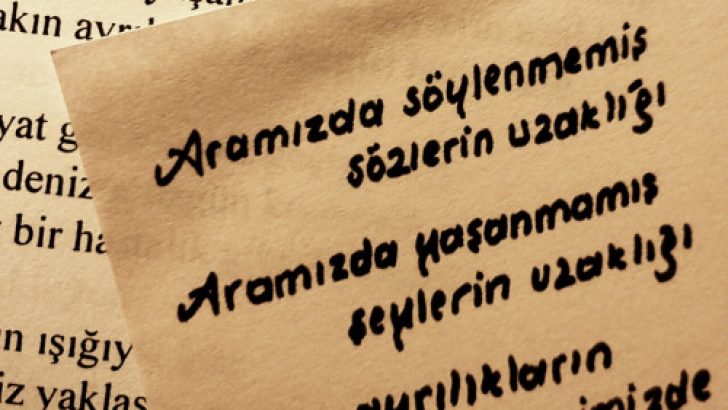 akın
yat
deniz
bir
ışığıy
iz yaklaş
Aramızda söylenmemiş
sözlerin uzaklığı
Aramızda yaşanmamış
şeylerin uzaklığı
ayrılıkların